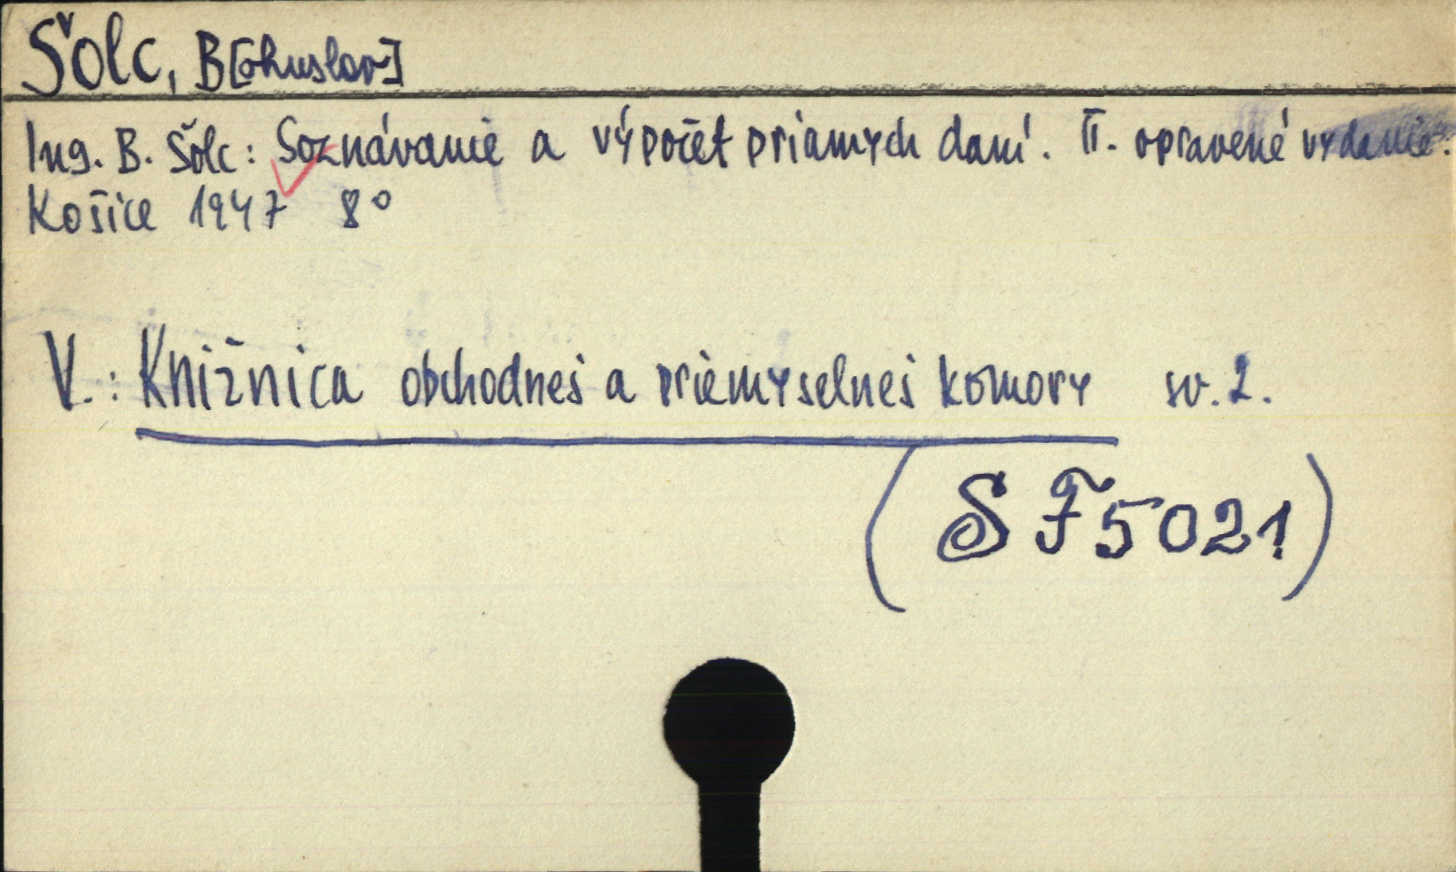 Šolc, B[ohuslav]
Ing. B. Šolc: Soznávanie a výpočet priamych daní. II. opravené vydanie.
Košice 1947 8°
V.: Knižnica obchodnej a priemyselnej komory sv. 2.
(SF5021)